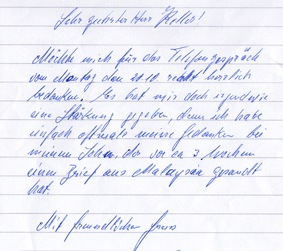 Sehr geehrter Herr Keller!
Möchte mich für das Telefongespräch
vom Montag den 20.10. recht herzlich
bedanken. Es hat mir doch irgendwie
eine Stärkung gegeben, denn ich habe
einfach oftmals meine Gedanken bei
meinem Sohn, der vor ca 3 Wochen
einen Brief aus Malaysia gesandt
hat.
Mit freundlichen Gruss